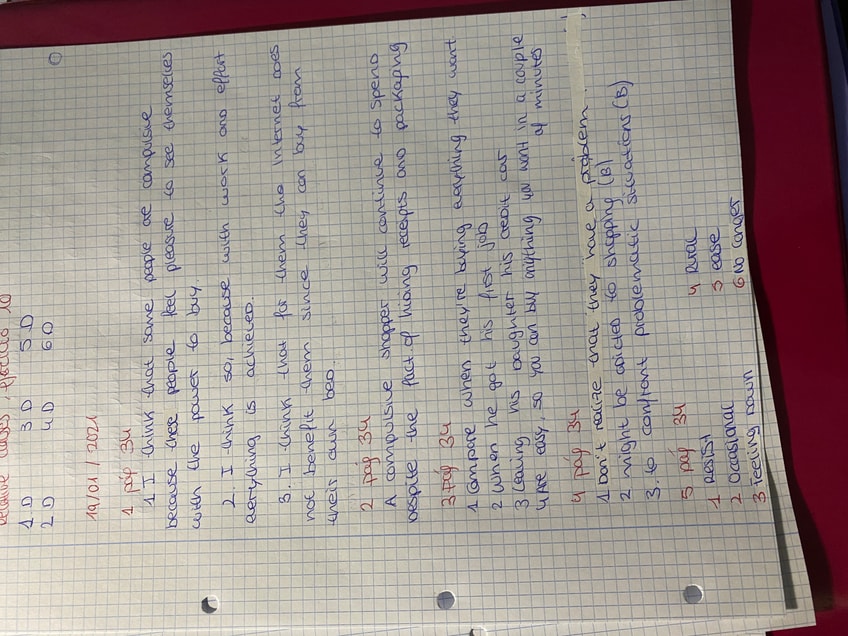 clauses, ejercicio 10
1. D 3 D 5. D
2. D 4 D 6 D
19/01/2021
1 pág 34
1 I think that some people are compulsive
because these people feel pleasure to see themselves
with the power to buy.
2. I think so, because with work and effort
everything is achieved.
3. I think that for them the Internet does
not benefit them since they can buy from
their own bed.
2 pág 34
A compulsive shopper will continue to spend
despite the fact of hiding receipts and packaging
3 pág 34
1 Compare when they're buying everything they want
2 When he got his first job
3 Leaving his daughter his credit car
4 Are easy, so you can buy anything you want in a couple
of minutes
4 pág 34
1 Don't realize that they have a problem.
2 might be adicted to shopping (B)
3. to confrant problematic situations (B)
5 pág 34
1 Resist 4
2 Occasional 5 ease
3 Feeling down 6 No longer